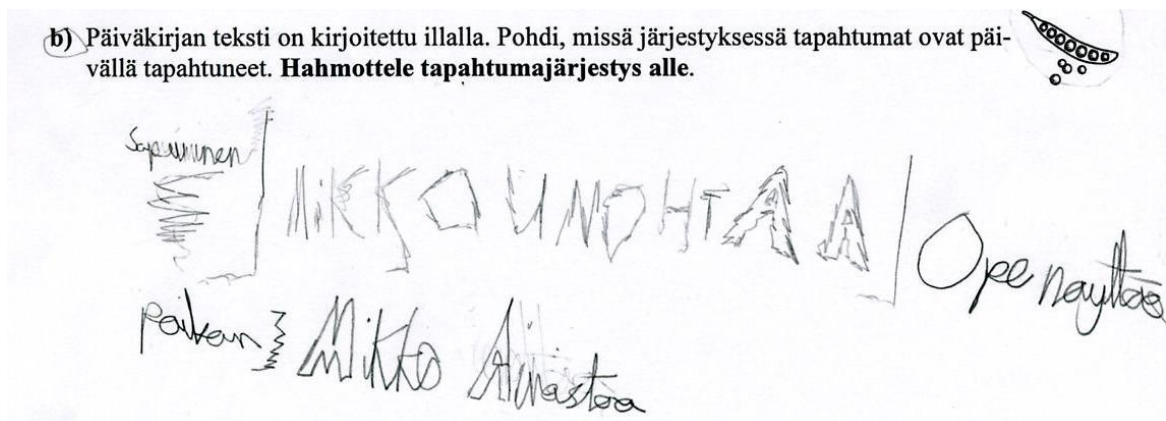 b) Päiväkirjan teksti on kirjoitettu illalla. Pohdi, missä järjestyksessä tapahtumat ovat päi-
vällä tapahtuneet. Hahmottele tapahtumajärjestys alle.
Sapuminen MIKKO UNOHTAA Ope näyttää
paikan Mikko Aivastaa